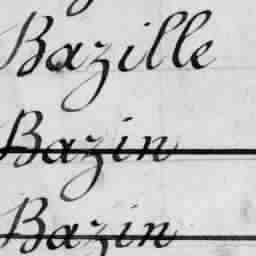 Bazille
Bazin
Bazin